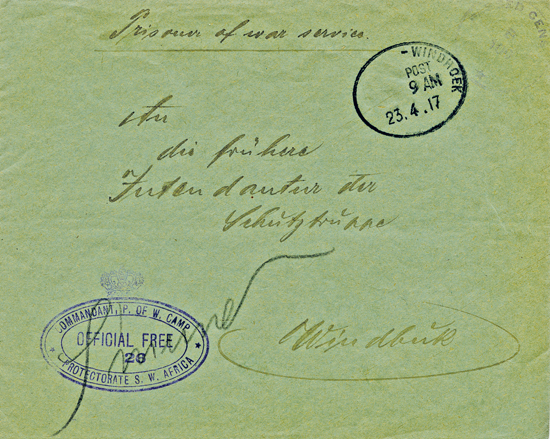 Prisoner of war service.
- WINDHOEK
POST
9 AM
23.4.17
An
die frühere
Intendantur der
Schutztruppe
Windhuk
COMMANDANT, P. OF W. CAMP
OFFICIAL FREE
26
* PROTECTORATE S. W. AFRICA *